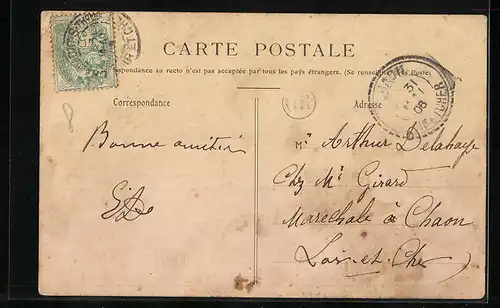 CARTE POSTALE
La Correspondance au recto n'est pas acceptée par tous les pays étrangers. (Se renseigner à la Poste)
Correspondance
Adresse
Bonne amitié
Mr Arthur Delahaye
Chz Mr Girard
Marechale à Chaon
Loir-et-Cher